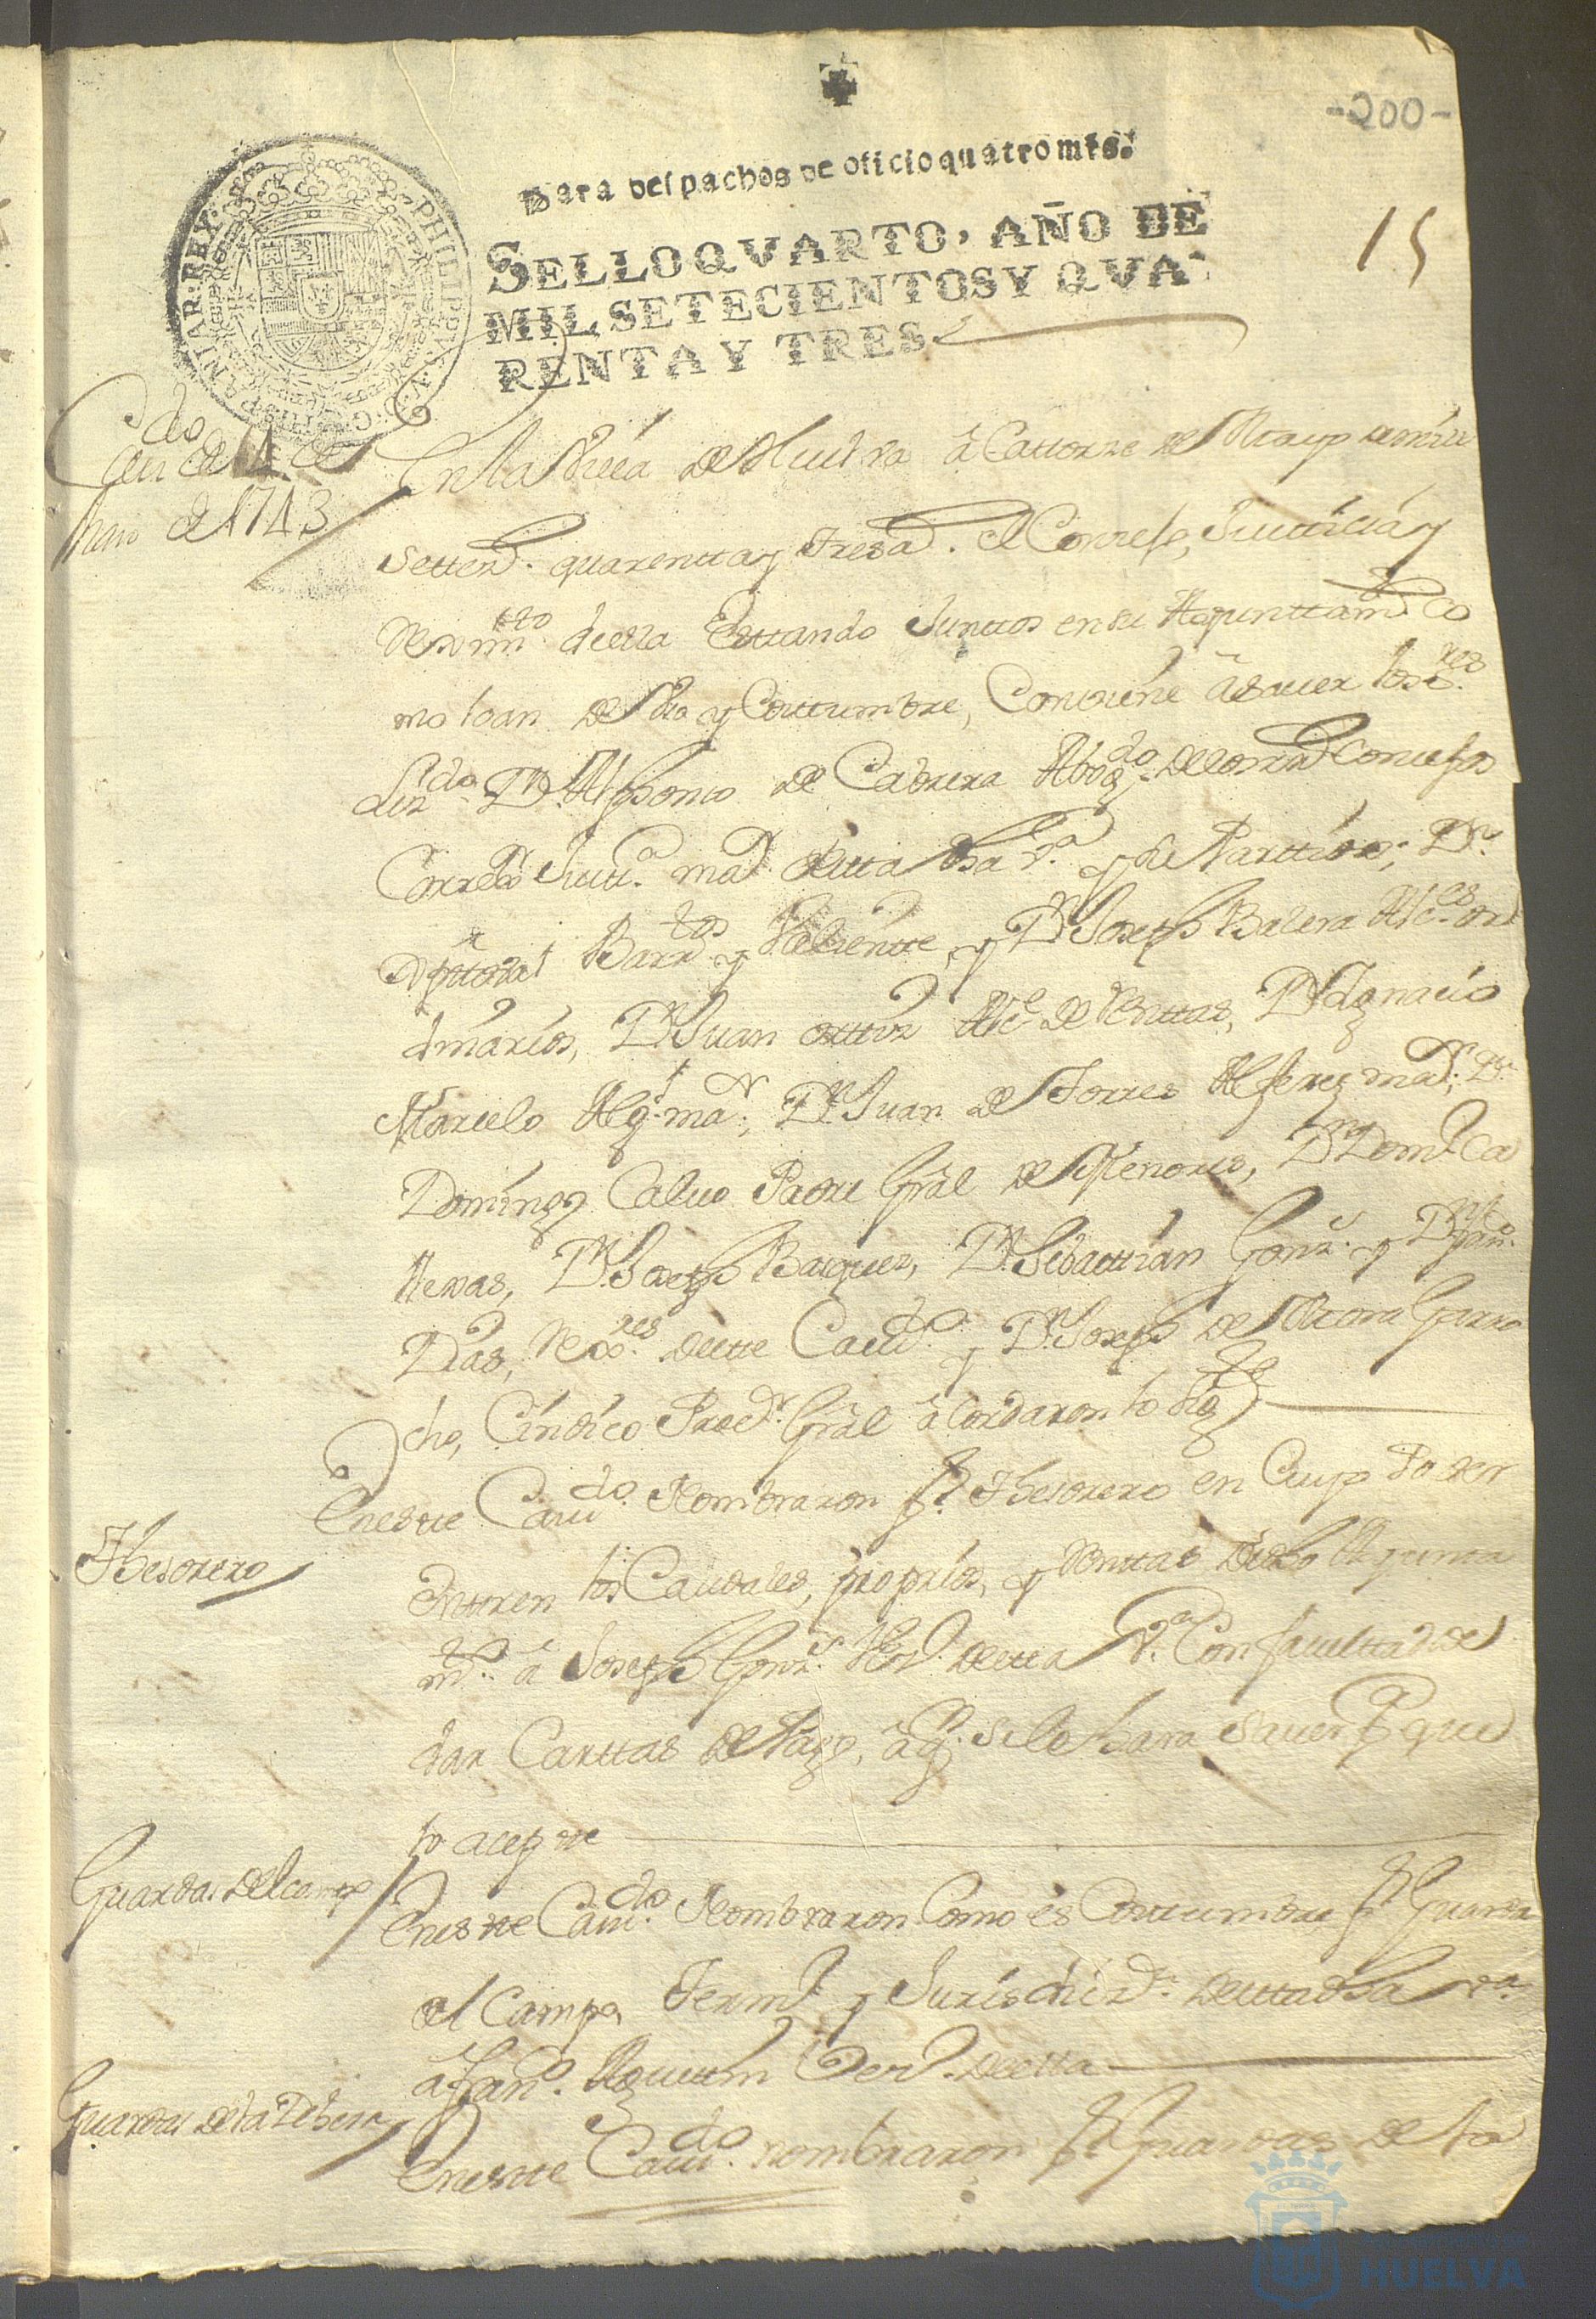 -200-
Para despachos de oficio quatro mrs.
SELLO QVARTO, AÑO DE
MIL SETECIENTOS Y QVA-
RENTA Y TRES.
15
PHILIPPVS V. D. G. HISPANIAR. REY
Cdo
de 14 de
Maio de 1743
En la Villa de Huelva â Cattorze de Mayo de mill
Settezs. quarentta y Tres as. el Consejo, Justicia y
Reximto. de ella Esttando Junttos en su Ayunttamto Co
mo lo an de Vso y Costtumbre, Combiene â sauer los Sres
Lizdo. Dn. Alphonso de Cabrera Abogdo. de los Rs Consejos
Correxor Justa. mar destta dha Va. y su Parttido; Dn.
Barrtos y Baliente, y Dn Joseph Balera Alces. or
dinarios, Dn Juan orttiz Alce de Renttas, Dn Ygnacio
Marcelo Algl. mar., Dn Juan de Torres Alferez mar; Dn
Domingo Calvo Padre Grâl de Menores, Dn Domo Ca
Dn. Joseph Basquez, Dn. Sebasttian Gonz. y Dn Franco.
Dias, Rexres. destte Cavdo. y Dn. Joseph de Mora Garro
cho, Cindico Procor. Grâl âcordaron lo sigte
Thesorero
En estte Cavdo. Nombraron pr. Thesorero en Cuyo Poder
Enttren los Caudales, proprios, y Renttas desde Ayunta
mto. â Joseph Gonz. Vezo. destta Va. Con facultad de
dar Carttas de Pago, â qn. se le hara sauer pa que
lo acepte
Guardas del campo
En estte Cavdo. Nombraron Como es Costtumbre pr Guarda
el Campo, Termo y Jurisdizon. destta dha Va.
â Franco. Agusttin Vezo. de ella
Guardas de la Dehesa
En estte Cavdo. nombraron pr Guardas de la
HUELVA